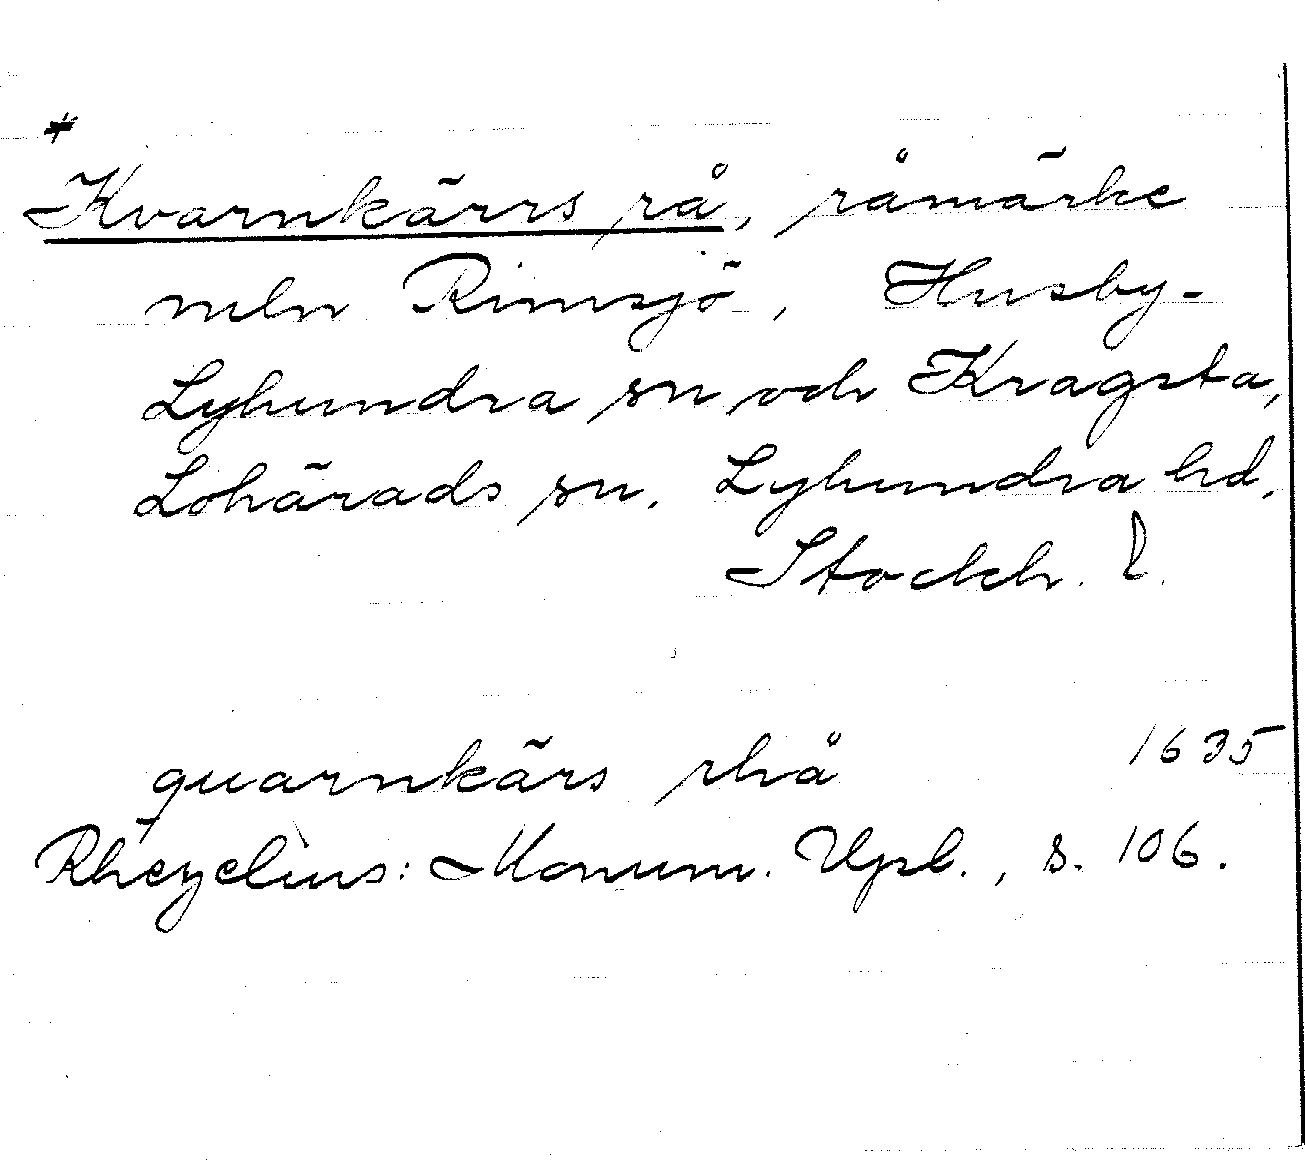 *
Kvarnkärrs rå, råmärke
mln Rimsjö, Husby-
Lyhundra sn och Kragsta,
Lohärads sn. Lyhundra hd,
Stockh. l.
quarnkärs rhå 1635
Rhezelius: Monum. Upl., s. 106.